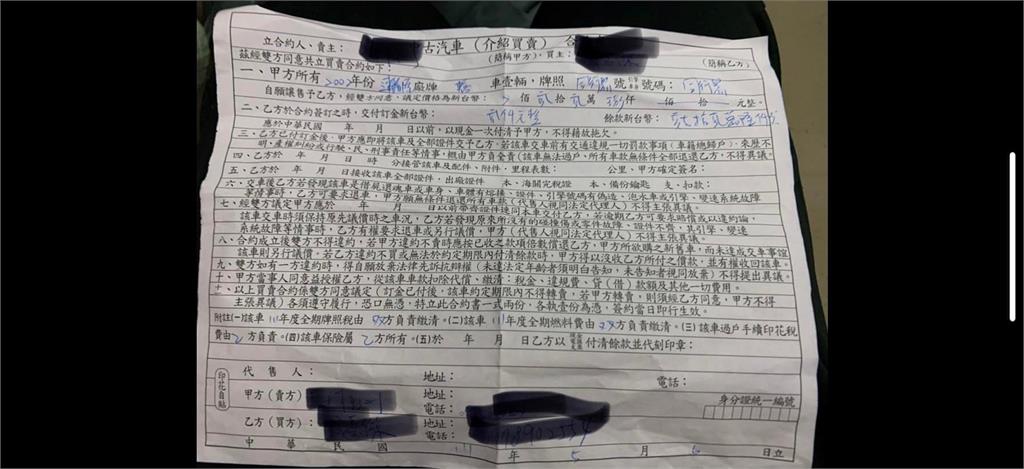 古汽車（介紹買賣）合
立合約人、賣主： （簡稱甲方）買主： （簡稱乙方）
茲經雙方同意共立買賣合約如下：
一、甲方所有2002年份 廠牌 車壹輛，牌照 號 號碼：
自願讓售予乙方，經雙方同意，議定價格為新台幣： 佰貳拾貳萬 仟 佰 拾 元整。
二、乙方於合約簽訂之時，交付訂金新台幣：貳仟元整 餘款新台幣：
應於中華民國 年 月 日以前，以現金一次付清予甲方，不得藉故拖欠。
三、乙方已付訂金後，甲方應即將該車及全部證件交予乙方，若該車交車前有交通違規一切罰款事項（車籍總歸戶），來歷不
明，產權糾紛或行駛、民、刑事責任等情事，概由甲方負全責（該車無法過戶，所有車款無條件全部退還乙方，不得異議。
四、乙方於 年 月 日 時 分接管該車及配件、附件，里程表數： 公里，甲方確定簽名：
五、乙方於 年 月 日接收該車全部證件，出廠證件 本、海關完稅證 本、備份鑰匙 支，扣款：
六、交車後乙方若發現該車是借屍還魂車或車身、車體有熔接、證件、引擎號碼有偽造、泡水車或引擎、變速系統故障
等情事時，乙方可要求退車，甲方願無條件退還所有車款（代售人視同法定代理人）不得主張異議。
七、經雙方議定甲方應於 年 月 日以前帶齊證件連同本車交付乙方，若逾期乙方可要求賠償或以違約論，
該車交車時須保持原先議價時之車況，乙方若發現原來所沒有的碰撞傷或零件故障、證件不齊，其引擎、變速
系統故障等情事時，乙方有權要求退車或另行議價，甲方（代售人視同法定代理人）不得主張異議。
八、合約成立後雙方不得違約，若甲方違約不賣時應按已收之款項倍數償還乙方，甲方所欲購之新舊車，而未達成交車事誼
該車則另行議價。若乙方違約不買或無法於約定期限內付清餘款時，甲方得以沒收乙方所付之價款，並有權收回該車。
九、雙方如有一方違約時，得自願放棄法律先訴抗辯權（未達法定年齡者須明白告知，未告知者視同放棄）不得提出異議。
十、甲方當事人同意並授權乙方，從該車車款扣除代償、繳清：稅金、違規費、貸（借）款額及其他一切費用。
十一、以上買賣合約係雙方同意議定（訂金已付後，該車約定期限內不得轉賣，若甲方轉賣，則須經乙方同意，甲方不得
主張異議）各須遵守履行，恐口無憑，特立此合約書一式兩份，各執壹份為憑，簽約當日即行生效。
附註(一)該車111年度全期牌照稅由 方負責繳清。(二)該車111年度全期燃料費由 方負責繳清。(三)該車過戶手續印花稅
費由乙方負責。(四)該車保險屬乙方所有。(五)於 年 月 日乙方以 付清餘款並代刻印章：
印花自貼
代售人： 地址： 電話：
甲方（賣方） 地址：
電話： 身分證統一編號
乙方（買方）： 地址：
電話：
中華民國 111 年 5 月 6 日立